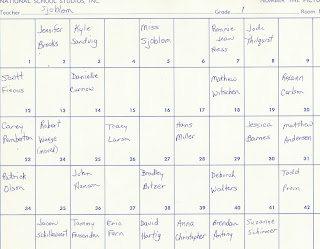 NATIONAL SCHOOL STUDIOS, INC.
Teacher Sjoblom Grade 1 Room
Jennifer Brooks
Kyle Sandvig
Miss Sjoblom
Bonnie Jean
Jodi
1 2 3 4 5 6 7 8 9
Scott
Danielle Curnow
Mathew Witschen
Roxann Carlson
12 13 14 15 16 17 18 19 20
Carey Pemberton
Robert Waege (moved)
Tracy Larson
Hans Miller
Jessica Barnes
Matthew Andersen
23 24 25 26 27 28 29 30 31
Patrick Olson
John Hanson
Bradley Bitzer
Deborah Walters
Todd Prom
34 35 36 37 38 39 40 41 42
Jason Schillewart
Tammy Fessenden
Eric Forn
David Hartig
Anna Christopher
Brendan
Suzanne Schinner